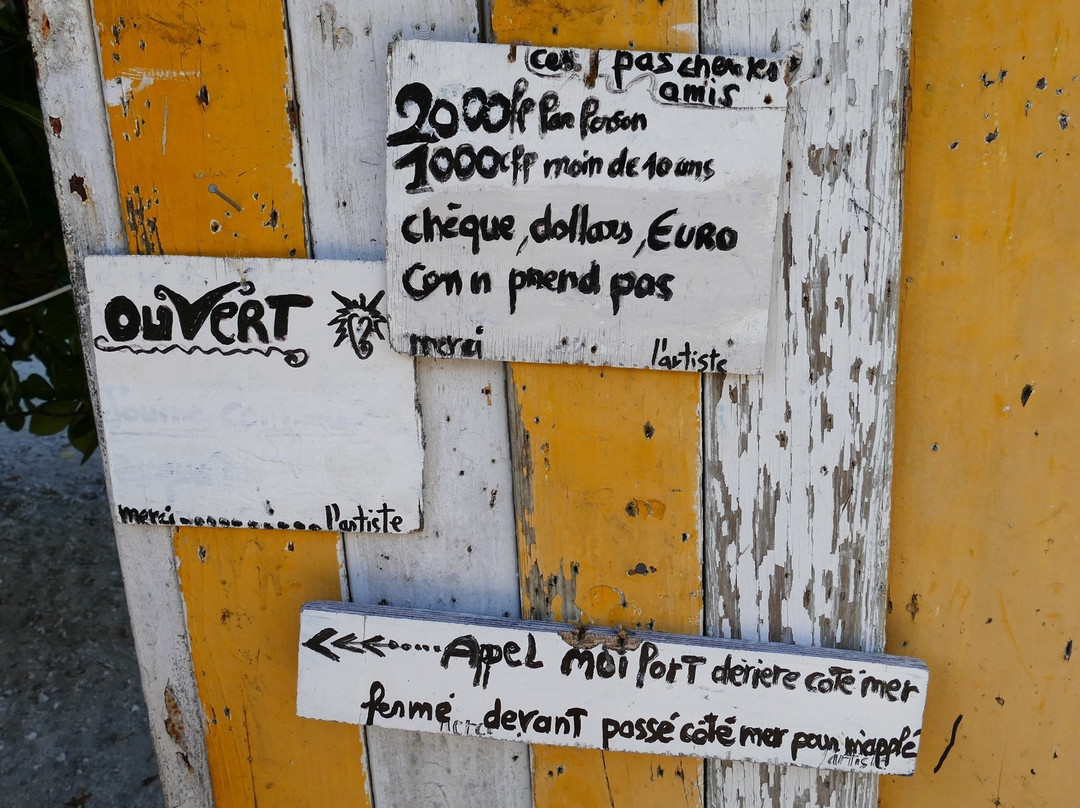 ces pas cher les
amis
2000fp Par Person
1000cfp moin de 10 ans
chéque, dollars, EURO
Con n prend pas
merci l'artiste
OUVERT
merci l'artiste
AppeL moi PorT deriere coté mer
fermé devanT passé côté mer pour m'applé